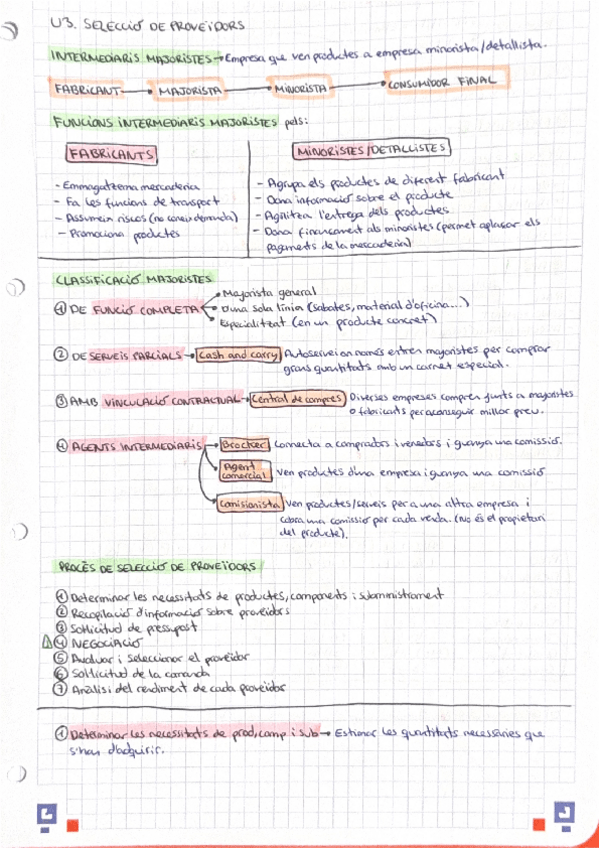 U3. SELECCIÓ DE PROVEÏDORS
INTERMEDIARIS MAJORISTES → Empresa que ven productes a empresa minorista/detallista.
FABRICANT → MAJORISTA → MINORISTA → CONSUMIDOR FINAL
FUNCIONS INTERMEDIARIS MAJORISTES pels:
FABRICANTS
- Emmagatzema mercaderia
- Fa les funcions de transport
- Assumeix riscos (no coneix demanda)
- Promociona productes
MINORISTES/DETALLISTES
- Agrupa els productes de diferent fabricant
- Dona informació sobre el producte
- Agilitza l'entrega dels productes
- Dona financament als minoristes (permet aplaçar els
pagaments de la mercaderia)
CLASSIFICACIÓ MAJORISTES
① DE FUNCIÓ COMPLETA
• Majorista general
• D'una sola línia (sabates, material d'oficina...)
• Especialitzat (en un producte concret)
② DE SERVEIS PARCIALS → Cash and carry Autoservei on només entren majoristes per comprar
grans quantitats amb un carnet especial.
③ AMB VINCULACIÓ CONTRACTUAL → Central de compres Diverses empreses compren junts a majoristes
o fabricants per aconseguir millor preu.
④ AGENTS INTERMEDIARIS → Brocker Connecta a compradors i venedors i guanya una comissió.
Agent comercial Ven productes d'una empresa i guanya una comissió
Comisionista Ven productes/serveis per a una altra empresa i
cobra una comissió per cada venda. (No és el propietari
del producte).
PROCÉS DE SELECCIÓ DE PROVEÏDORS
① Determinar les necessitats de productes, components i subministrament
② Recopilació d'informació sobre proveïdors
③ Sol·licitud de pressupost
④ NEGOCIACIÓ
⑤ Avaluar i seleccionar el proveïdor
⑥ Sol·licitud de la comanda
⑦ Anàlisi del rendiment de cada proveïdor
① Determinar les necessitats de prod, comp i sub → Estimar les quantitats necessàries que
s'han d'adquirir.